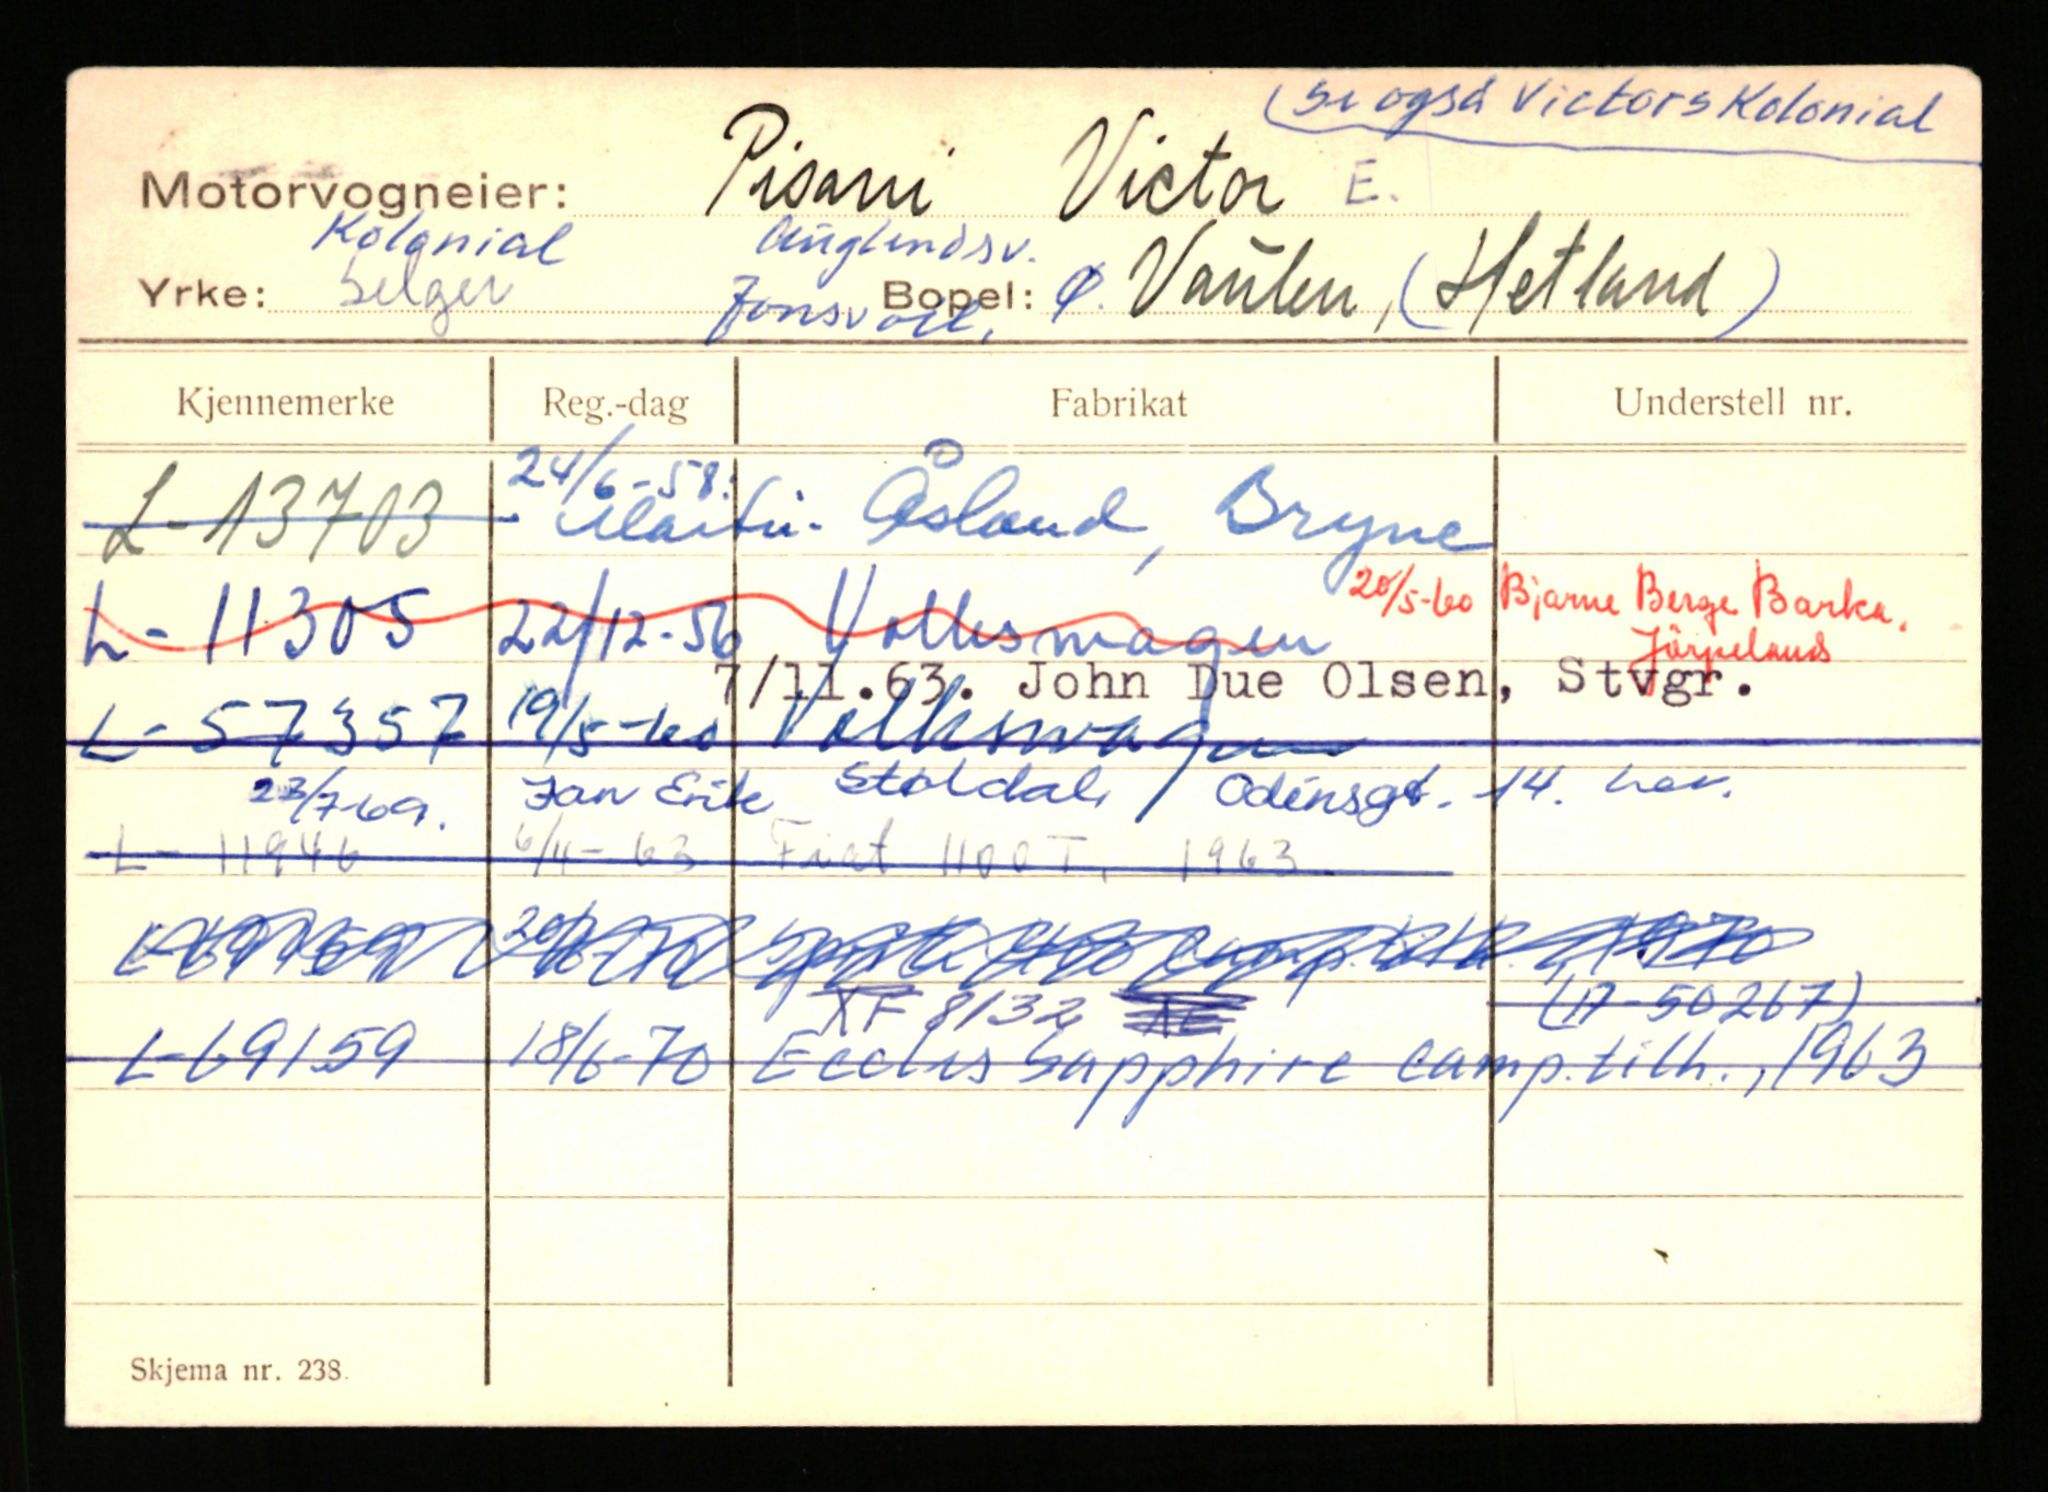 (Se også Victors Kolonial
Motorvogneier: Pisani Victor E.
Kolonial Auglendsv.
Yrke: Selger Jonsvoll, Bopel: Ø. Vaulen, (Hetland)
Kjennemerke Reg.-dag Fabrikat Understell nr.
24/6-58.
L-13703 Martin Åsland, Bryne
20/5-60 Bjarne Berge Barka.
L-11305 22/12-56 Volkswagen Jørpeland
7/11.63. John Due Olsen, Stvgr.
L-57357 19/5-60 Volkswagen
23/7-69. Jan Erik Støldal, Odinsgt. 14. her.
L-11946 6/11-63 Fiat 1100T, 1963
L-69159 1970
XF 8132 (17-50267)
L-69159 18/6-70 Eccles Sapphire camp.tilh., 1963
Skjema nr. 238.